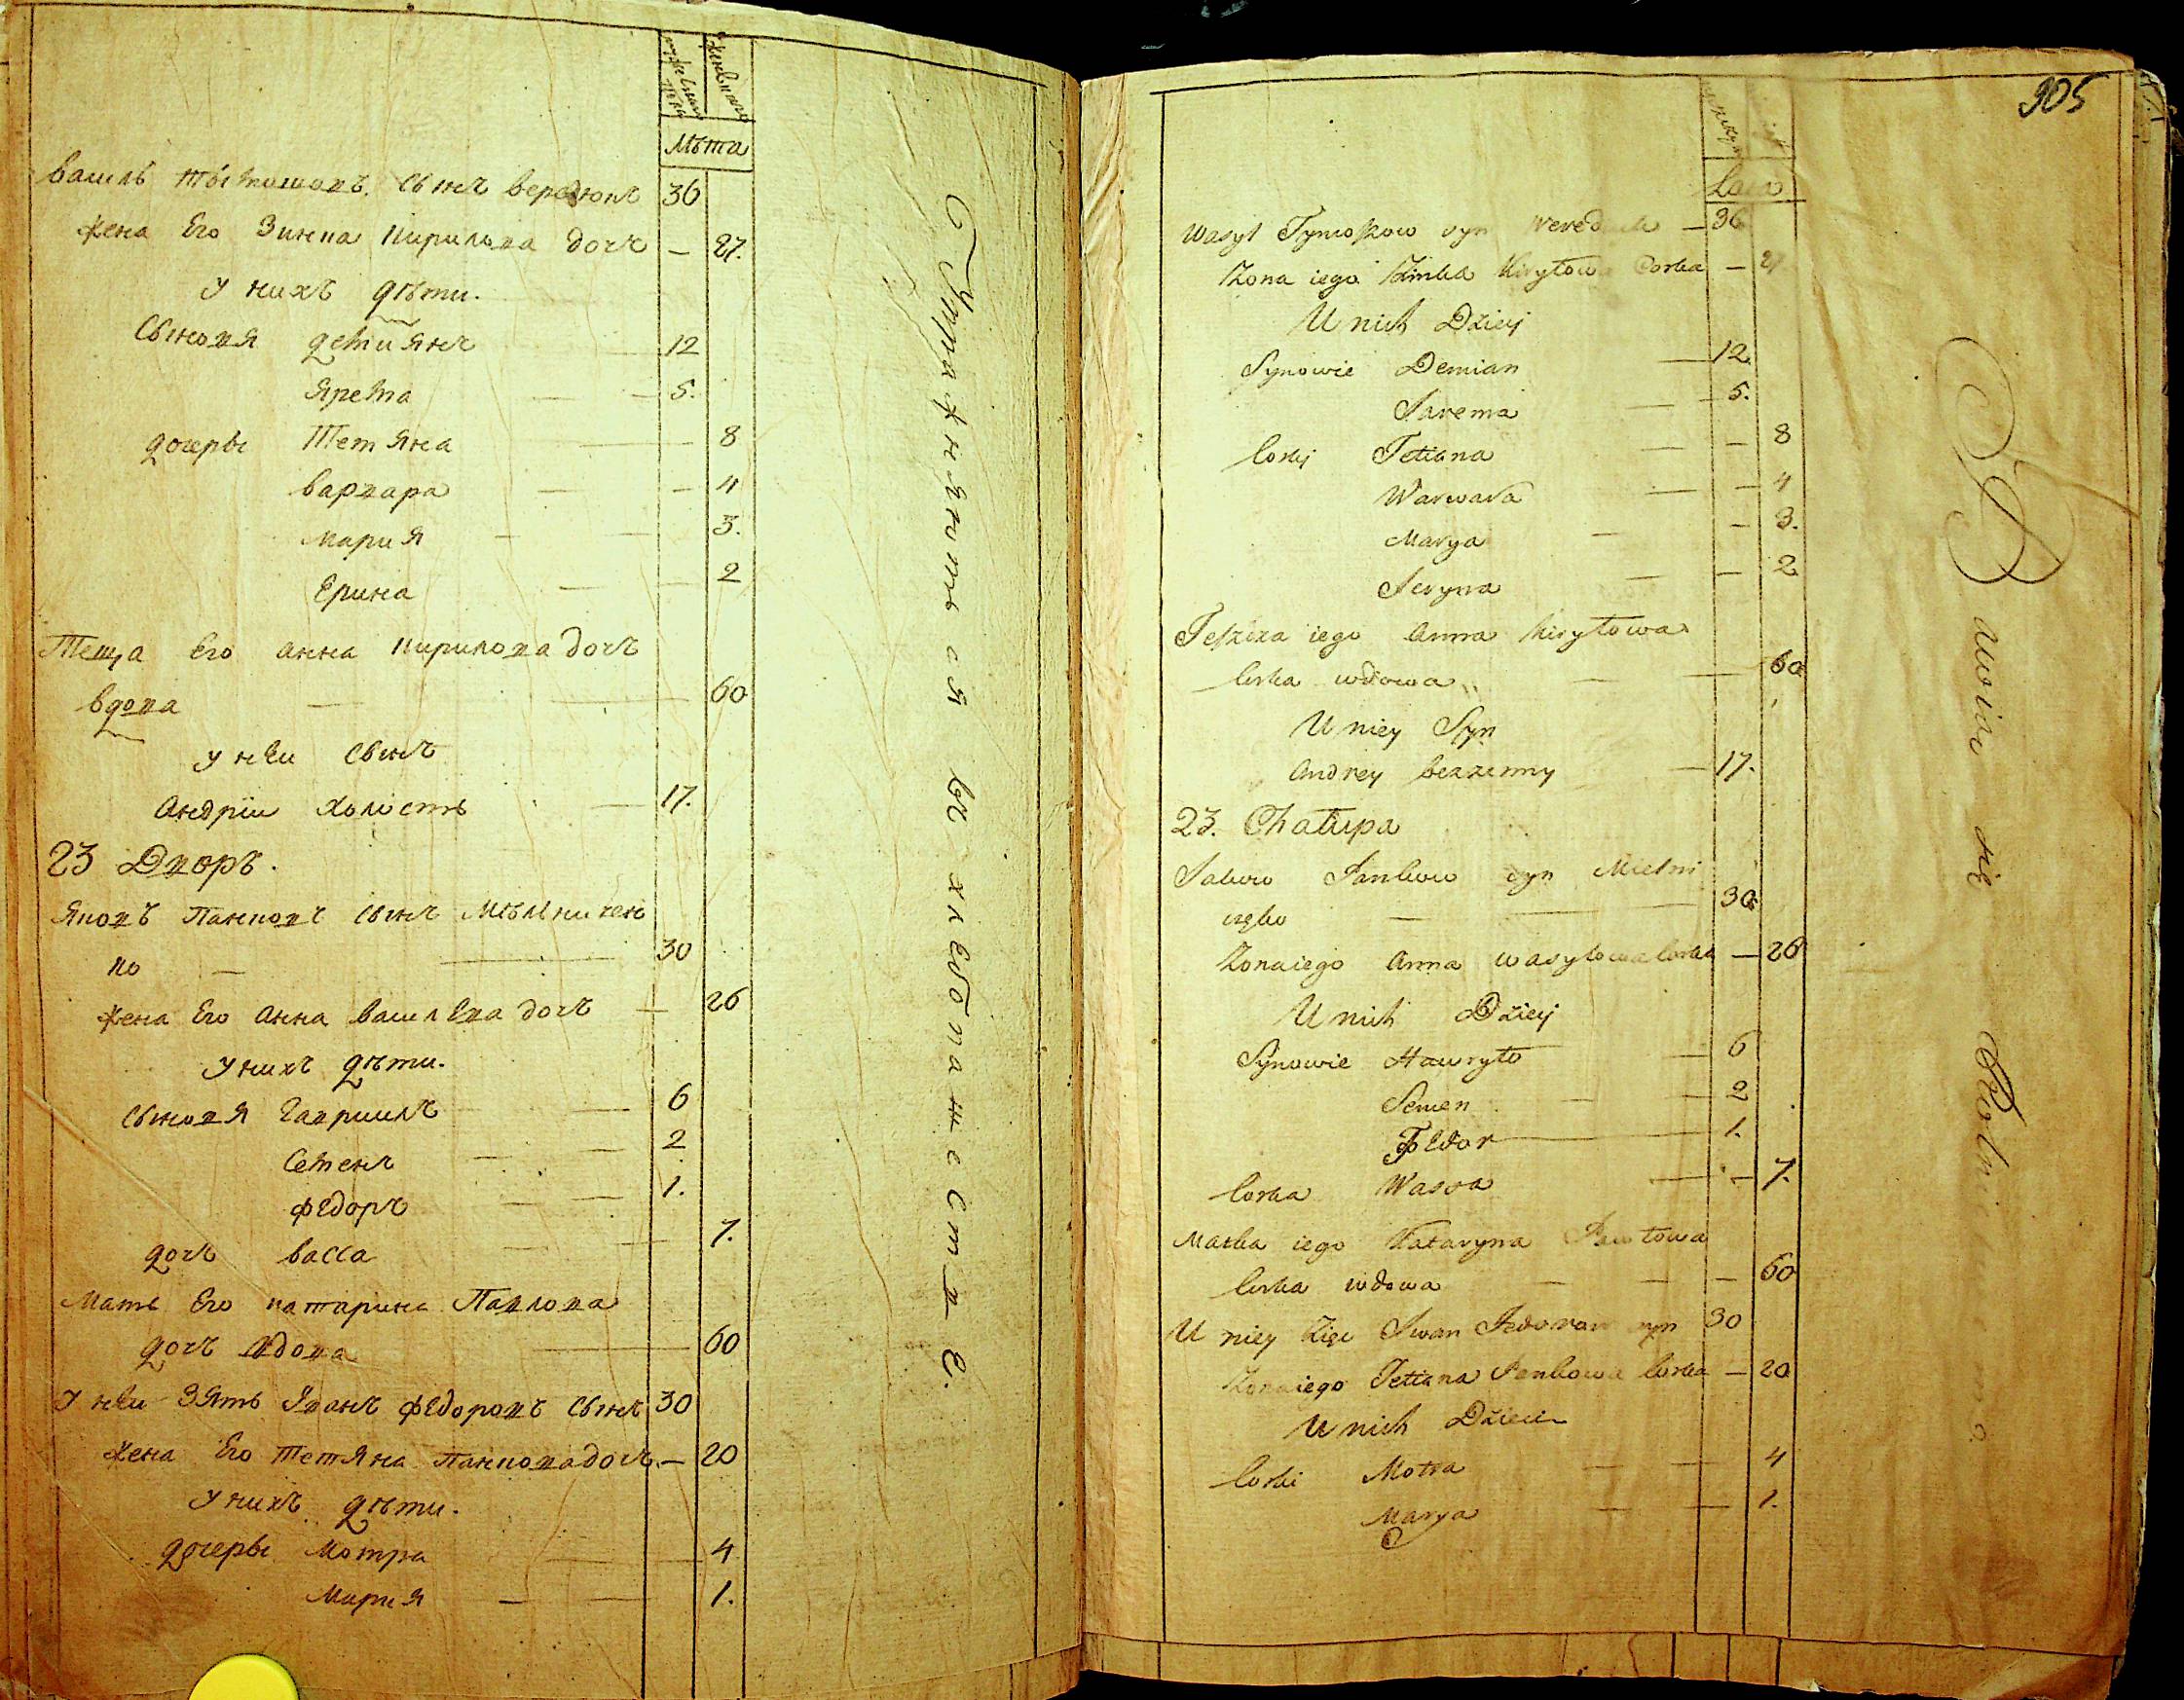 мужеска пола
женскаго
Лѣта
Василь Тымошовъ Сынъ Вередюкъ 36
жена Его Зинка Кирилова дочъ — 27.
У нихъ Дѣти.
Сыновя Демиянъ 12
Ярема — — 5.
Дочеры Тетяна — 8
Варвара — — 4
Мария — — 3.
Ерина — — 2
Теща Его Анна Кирилова дочъ
Вдова — — 60
У неи Сынъ
Андрїи Холостъ — 17.
23 Дворъ.
Яковъ Панковъ Сынъ Мѣлничен
ко — — 30
жена Его Анна Василева дочъ — 26
У нихъ Дѣти.
Сыновя Гавриилъ — 6
Семенъ — — 2
Федоръ — — 1.
Дочъ Васса — — 7.
Мать Его Катарина Павлова
Дочъ Вдова — 60
У неи Зять Iванъ Федоровъ Сынъ 30
жена Его Тетяна Панкова дочъ — 20
У нихъ Дѣти.
Дочеры Мотра — 4
Мария — — 1.
Упражняются въ хлебопашестве.
905
Lata
Wasyl Tymoszow syn Wereduk — 36
Żona iego Zinka Kiryłowa Corka — 27
U nich Dzieij
Synowie Demian — 12.
Jarema — 5.
Corkj Tetiana — — 8
Warwara — — 4
Marya — — 3.
Jeryna — — 2
Teszcza iego Anna Kiryłowa
Corka wdowa — — 60
U niey Syn
Andrey bezzenny — 17.
23. Chałupa
Jakow Pankow syn Mielni
częko — — 30.
Zona iego Anna Wasylowa Corka — 26
U nich Dzieij
Synowie Hawryło — 6
Semen — — 2
Fedor — 1.
Corka Wassa — — 7.
Matka iego Kataryna Pawłowa
Corka wdowa — — — 60
U niey Zięc Iwan Fedorow syn 30
Zona iego Tetiana Pankowa Corka — 20
U nich Dzieci
Corki Motra — — 4
Marya — — 1.
Bawią się